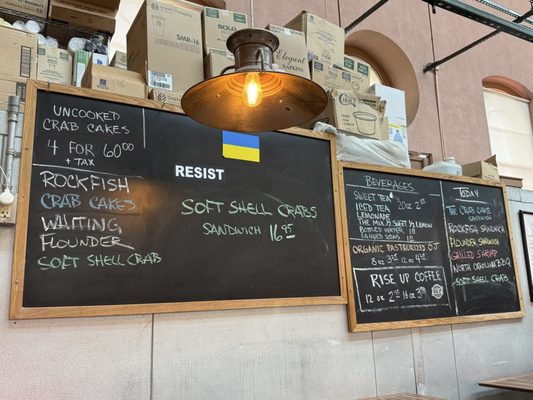 UNCOOKED
CRAB CAKES
4 FOR 60.00
+ TAX
ROCKFISH
CRAB CAKES
WHITING
FLOUNDER
SOFT SHELL CRABS
RESIST
SOFT SHELL CRABS
SANDWICH 16.95
BEVERAGES
SWEET TEA
ICED TEA
20 oz 2
LEMONADE
THE MIX 1/2 SWEET 1/2 LEMON
BOTTLED WATER
CANNED SODAS
ORGANIC PASTEURIZED OJ
8 oz 3 12 oz 4
RISE UP COFFEE
12 oz 2 16 oz 3
TODAY
THE CRAB CAKE
SANDWICH
ROCKFISH SANDWICH
FLOUNDER SANDWICH
GRILLED SHRIMP
NORTH CAROLINA BBQ
SOFT SHELL CRABS
SMR-16
SOLO
Elegant
NAPKINS